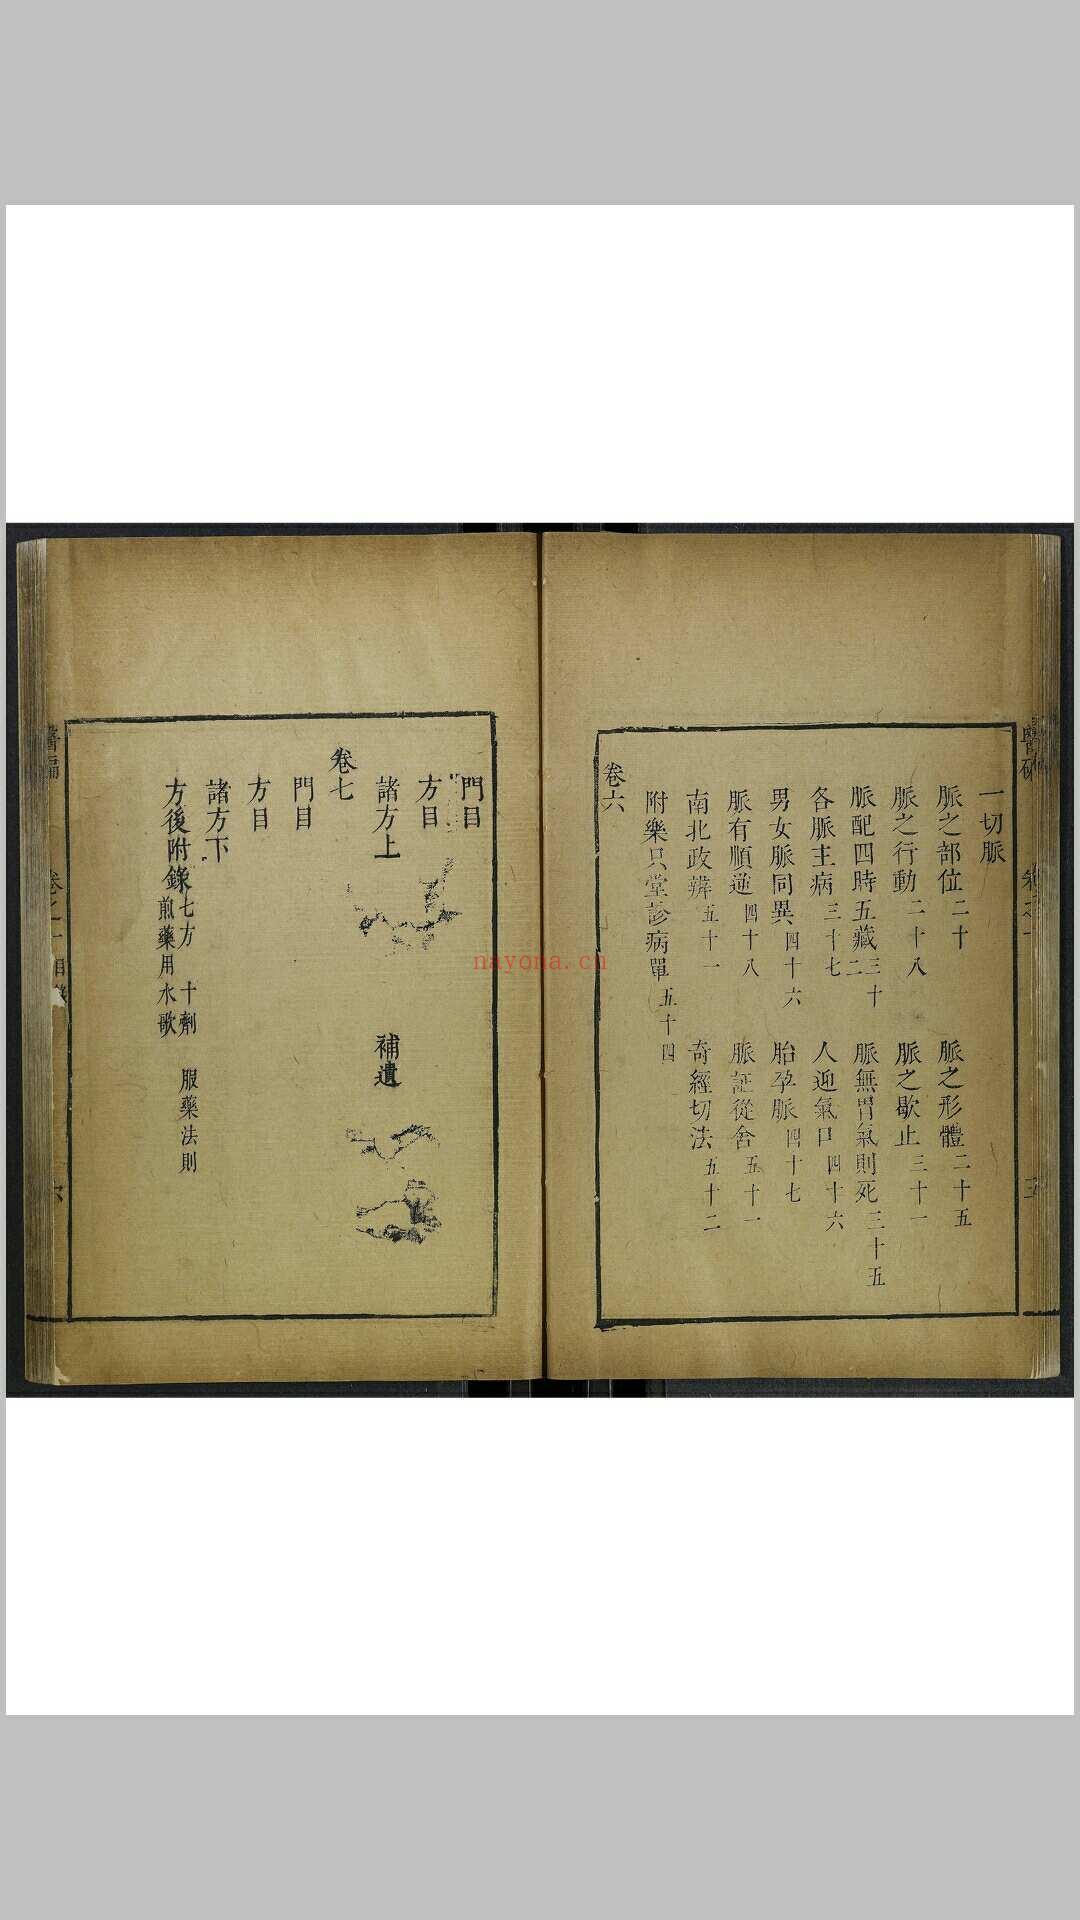 一切脈
脈之部位二十 脈之形體二十五
脈之行動二十八 脈之歇止三十一
脈配四時五藏三十二 脈無胃氣則死三十五
各脈主病三十七 人迎氣口四十六
男女脈同異四十六 胎孕脈四十七
脈有順逆四十八 脈証從舍五十一
南北政辨五十一 奇經切法五十二
附樂只堂診病單五十四
卷六
門目
方目
諸方上 補遺
卷七
門目
方目
諸方下
方後附錄 七方 十劑 服藥法則
煎藥用水歌
nayona.cn